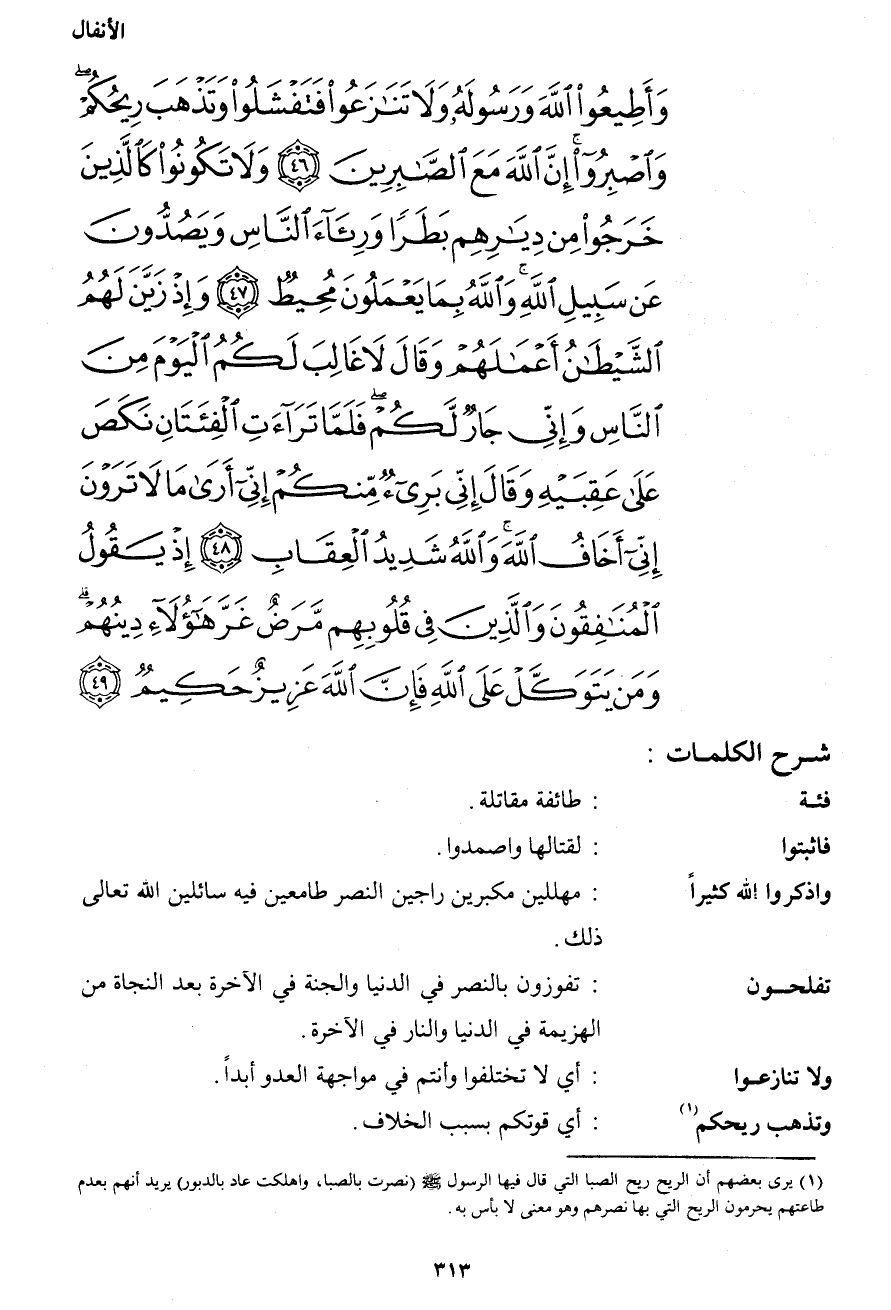 الأنفال
وَأَطِيعُوا۟ ٱللَّهَ وَرَسُولَهُۥ وَلَا تَنَٰزَعُوا۟ فَتَفْشَلُوا۟ وَتَذْهَبَ رِيحُكُمْ ۖ
وَٱصْبِرُوٓا۟ ۚ إِنَّ ٱللَّهَ مَعَ ٱلصَّٰبِرِينَ ٤٦ وَلَا تَكُونُوا۟ كَٱلَّذِينَ
خَرَجُوا۟ مِن دِيَٰرِهِم بَطَرًا وَرِئَآءَ ٱلنَّاسِ وَيَصُدُّونَ
عَن سَبِيلِ ٱللَّهِ ۚ وَٱللَّهُ بِمَا يَعْمَلُونَ مُحِيطٌ ٤٧ وَإِذْ زَيَّنَ لَهُمُ
ٱلشَّيْطَٰنُ أَعْمَٰلَهُمْ وَقَالَ لَا غَالِبَ لَكُمُ ٱلْيَوْمَ مِنَ
ٱلنَّاسِ وَإِنِّى جَارٌ لَّكُمْ ۖ فَلَمَّا تَرَآءَتِ ٱلْفِئَتَانِ نَكَصَ
عَلَىٰ عَقِبَيْهِ وَقَالَ إِنِّى بَرِىٓءٌ مِّنكُمْ إِنِّىٓ أَرَىٰ مَا لَا تَرَوْنَ
إِنِّىٓ أَخَافُ ٱللَّهَ ۚ وَٱللَّهُ شَدِيدُ ٱلْعِقَابِ ٤٨ إِذْ يَقُولُ
ٱلْمُنَٰفِقُونَ وَٱلَّذِينَ فِى قُلُوبِهِم مَّرَضٌ غَرَّ هَٰٓؤُلَآءِ دِينُهُمْ ۗ
وَمَن يَتَوَكَّلْ عَلَى ٱللَّهِ فَإِنَّ ٱللَّهَ عَزِيزٌ حَكِيمٌ ٤٩
شرح الكلمات :
فئة : طائفة مقاتلة .
فاثبتوا : لقتالها واصمدوا .
واذكروا الله كثيراً : مهللين مكبرين راجين النصر طامعين فيه سائلين الله تعالى
ذلك .
تفلحون : تفوزون بالنصر في الدنيا والجنة في الآخرة بعد النجاة من
الهزيمة في الدنيا والنار في الآخرة .
ولا تنازعوا : أي لا تختلفوا وأنتم في مواجهة العدو أبداً .
وتذهب ريحكم (١) : أي قوتكم بسبب الخلاف .
(١) يرى بعضهم أن الريح ريح الصبا التي قال فيها الرسول ﷺ (نصرت بالصبا، واهلكت عاد بالدبور) يريد أنهم بعدم
طاعتهم يحرمون الريح التي بها نصرهم وهو معنى لا بأس به .
٣١٣